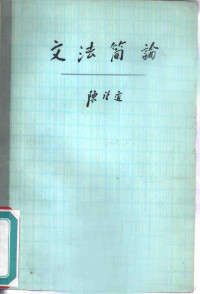 文法简論
陳望道